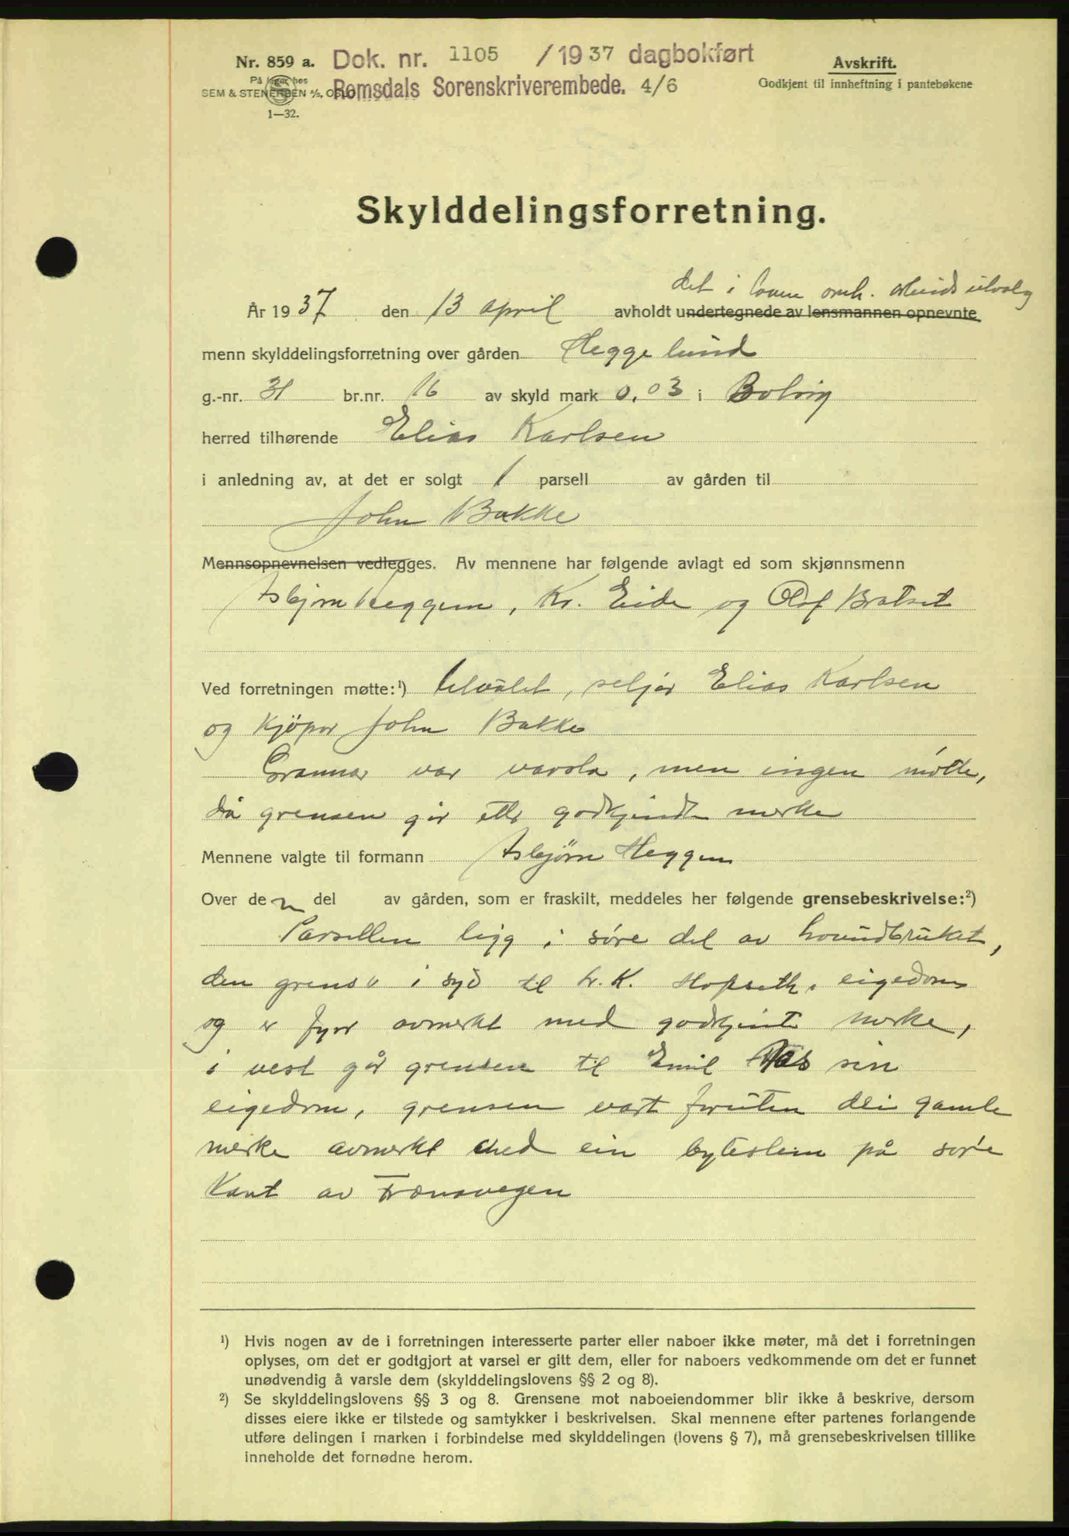 Nr. 859 a. Dok. nr. 1105 /1937 dagbokført Avskrift.
SEM & STENERSEN A/S, OSLO Romsdals Sorenskriverembede. 4/6 Godkjent til innheftning i pantebøkene
1—32.
Skylddelingsforretning.
det i loven omh. arbeidsutvalg
År 1937 den 13 april avholdt undertegnede av lensmannen opnevnte
menn skylddelingsforretning over gården Heggelund
g.-nr. 31 br.nr. 16 av skyld mark 0,03 i Bolsøy
herred tilhørende Elias Karlsen
i anledning av, at det er solgt 1 parsell av gården til
John Bakke
Mennsopnevnelsen vedlegges. Av mennene har følgende avlagt ed som skjønnsmenn
Asbjørn Heggem, Kr. Eide og Olaf Bratset
Ved forretningen møtte:¹) Utvalet, seljar Elias Karlsen
og kjöpar John Bakke
Grannar var varsla, men ingen møtte,
då grensen går etter godkjende merke
Mennene valgte til formann Asbjørn Heggem
Over den del av gården, som er fraskilt, meddeles her følgende grensebeskrivelse:²)
Parsellen ligg i søre del av hovudbruket,
den grensar i syd til K. Hopseth. eigedom
og er fyrr avmerkt med godkjent merke,
i vest går grensen til Emil Aas sin
eigedom, grensen vart foruten dei gamle
merke avmerkt med ein bytestein på sør'e
kant av Frænavegen
¹) Hvis nogen av de i forretningen interesserte parter eller naboer ikke møter, må det i forretningen
oplyses, om det er godtgjort at varsel er gitt dem, eller for naboers vedkommende om det er funnet
unødvendig å varsle dem (skylddelingslovens §§ 2 og 8).
²) Se skylddelingslovens §§ 3 og 8. Grensene mot naboeiendommer blir ikke å beskrive, dersom
disses eiere ikke er tilstede og samtykker i beskrivelsen. Skal mennene efter partenes forlangende
utføre delingen i marken i forbindelse med skylddelingen (lovens § 7), må grensebeskrivelsen tillike
inneholde det fornødne herom.